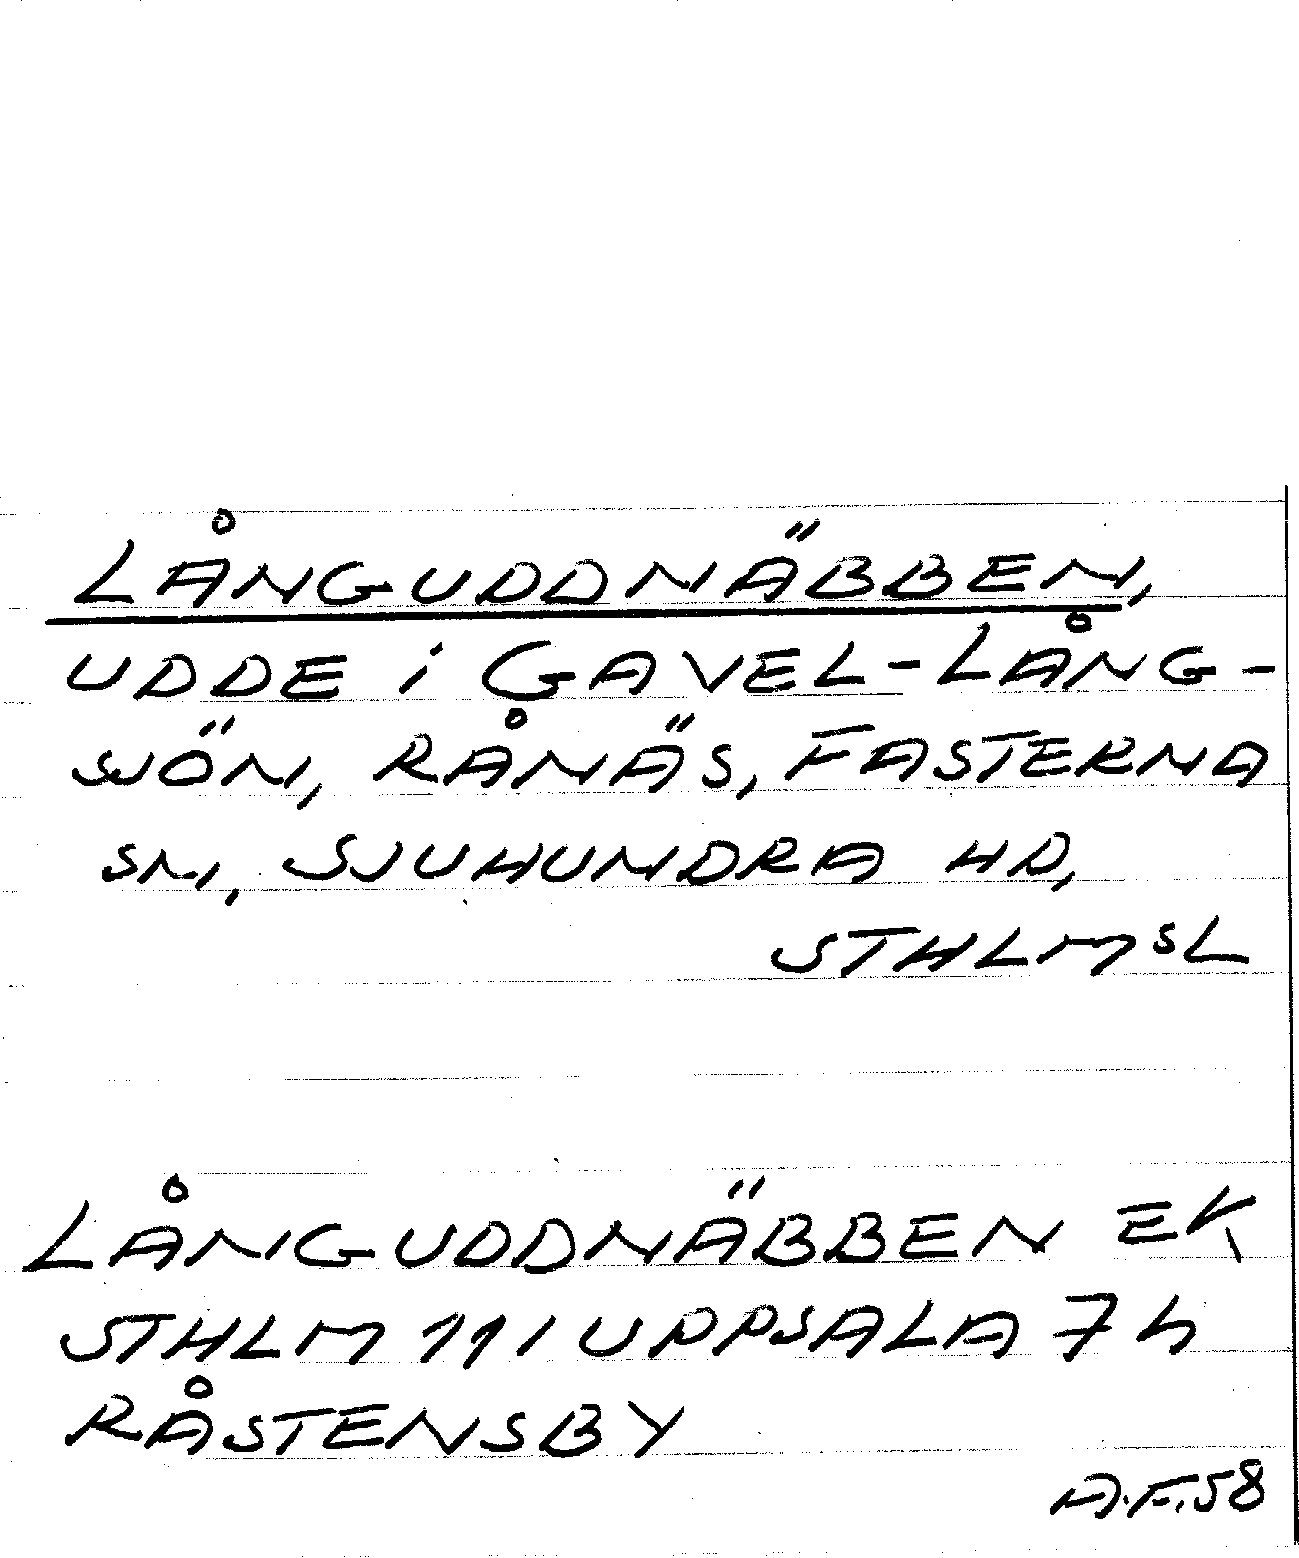 LÅNGUDDNÄBBEN,
UDDE i GAVEL-LÅNG-
SJÖN, RÅNÄS, FASTERNA
SN, SJUHUNDRA HD,
STHLMSL
LÅNGUDDNÄBBEN EK
STHLM 11 I UPPSALA 7 h
RÅSTENSBY
A.F. 58